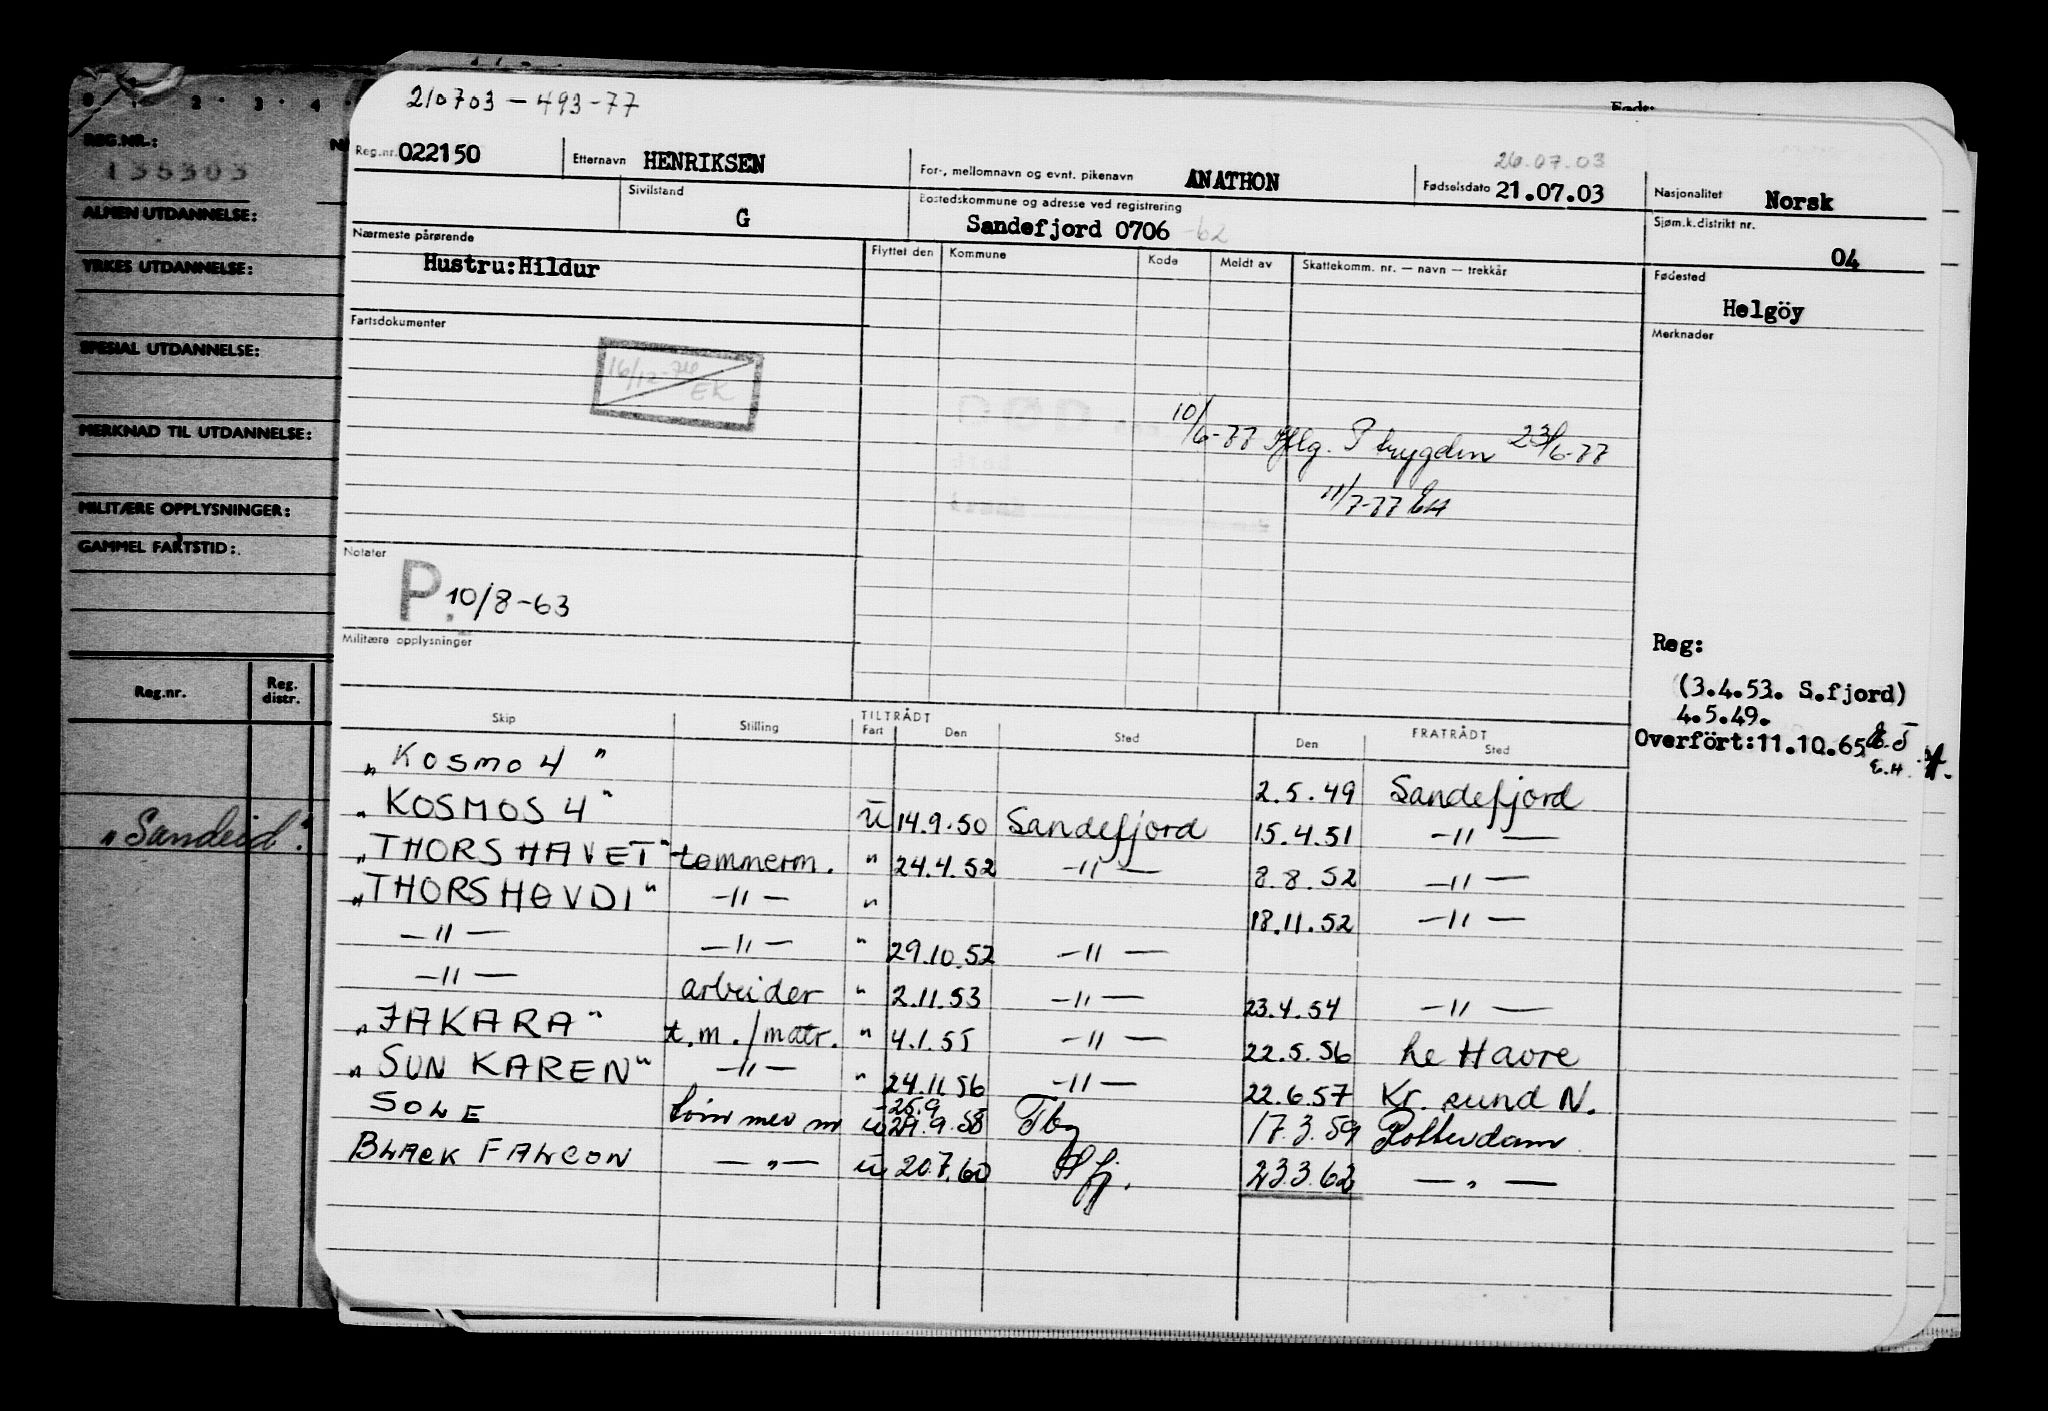 210703-493-77
Født:
0 1 2 3 4
REG.NR.:
135303
ALMEN UTDANNELSE:
YRKES UTDANNELSE:
SPESIAL UTDANNELSE:
MERKNAD TIL UTDANNELSE:
MILITÆRE OPPLYSNINGER:
GAMMEL FARTSTID:
Reg.nr. Reg. distr.
"Sandeid".
Reg.nr. 022150 Etternavn HENRIKSEN For-, mellomnavn og evnt. pikenavn ANATHON 26.07.03 Fødselsdato 21.07.03 Nasjonalitet Norsk
Sivilstand G Bostedskommune og adresse ved registrering Sandefjord 0706 -62 Sjøm.k.distrikt nr. 04
Nærmeste pårørende Flyttet den Kommune Kode Meldt av Skattekomm. nr. — navn — trekkår Fødested
Hustru:Hildur Helgöy
Fartsdokumenter Merknader
16/12-76 EK
10/6-77 Pftg. P trygden 23/6-77
11/7-77 EH
Notater
P. 10/8-63
Militære opplysninger
Reg:
(3.4.53. S.fjord)
4.5.49.
Overført:11.10.65
E.H.
Skip Stilling TILTRÅDT Fart Den Sted FRATRÅDT Den Sted
"Kosmo 4" 2.5.49 Sandefjord
"KOSMOS 4" u 14.9.50 Sandefjord 15.4.51 -"-
"THORSHAVET" tømmerm. " 24.4.52 -"- 8.8.52 -"-
"THORSHØVDI" -"- " 18.11.52 -"-
-"- -"- " 29.10.52 -"-
-"- arbeider " 2.11.53 -"- 23.4.54 -"-
"JAKARA" t.m./matr. " 4.1.55 -"- 22.5.56 Le Havre
"SUN KAREN" -"- " 24.11.56 -"- 22.6.57 Kr.sund N.
SOLE tømmerm u 25.9 29.9.58 Tbg 17.3.59 Rotterdam
BLACK FALCON -"- u 20.7.60 Sfj. 23.3.62 -"-